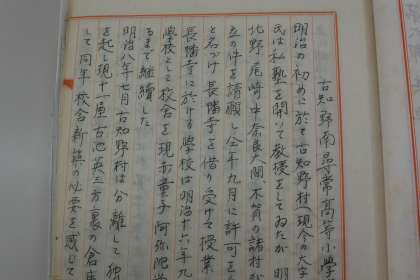 古知野南尋常高等小學
明治の初めに於て古知野村(現今の大字
氏は私塾を開いて教授をしてゐたが明
北野、尾崎、中奈良、大間、木賀の諸村が
立の件を請願し仝年九月に許可を
と名づけ長幡寺を借り受けて授業
長幡寺に於ける學校は明治十六年九
學校として校舎を現赤童子阿弥陀
るまで継續した
明治八年七月古知野村は分離して独
を起し現十一屋古池英三方裏の倉庫
して同年校舎新築の必要を感じて